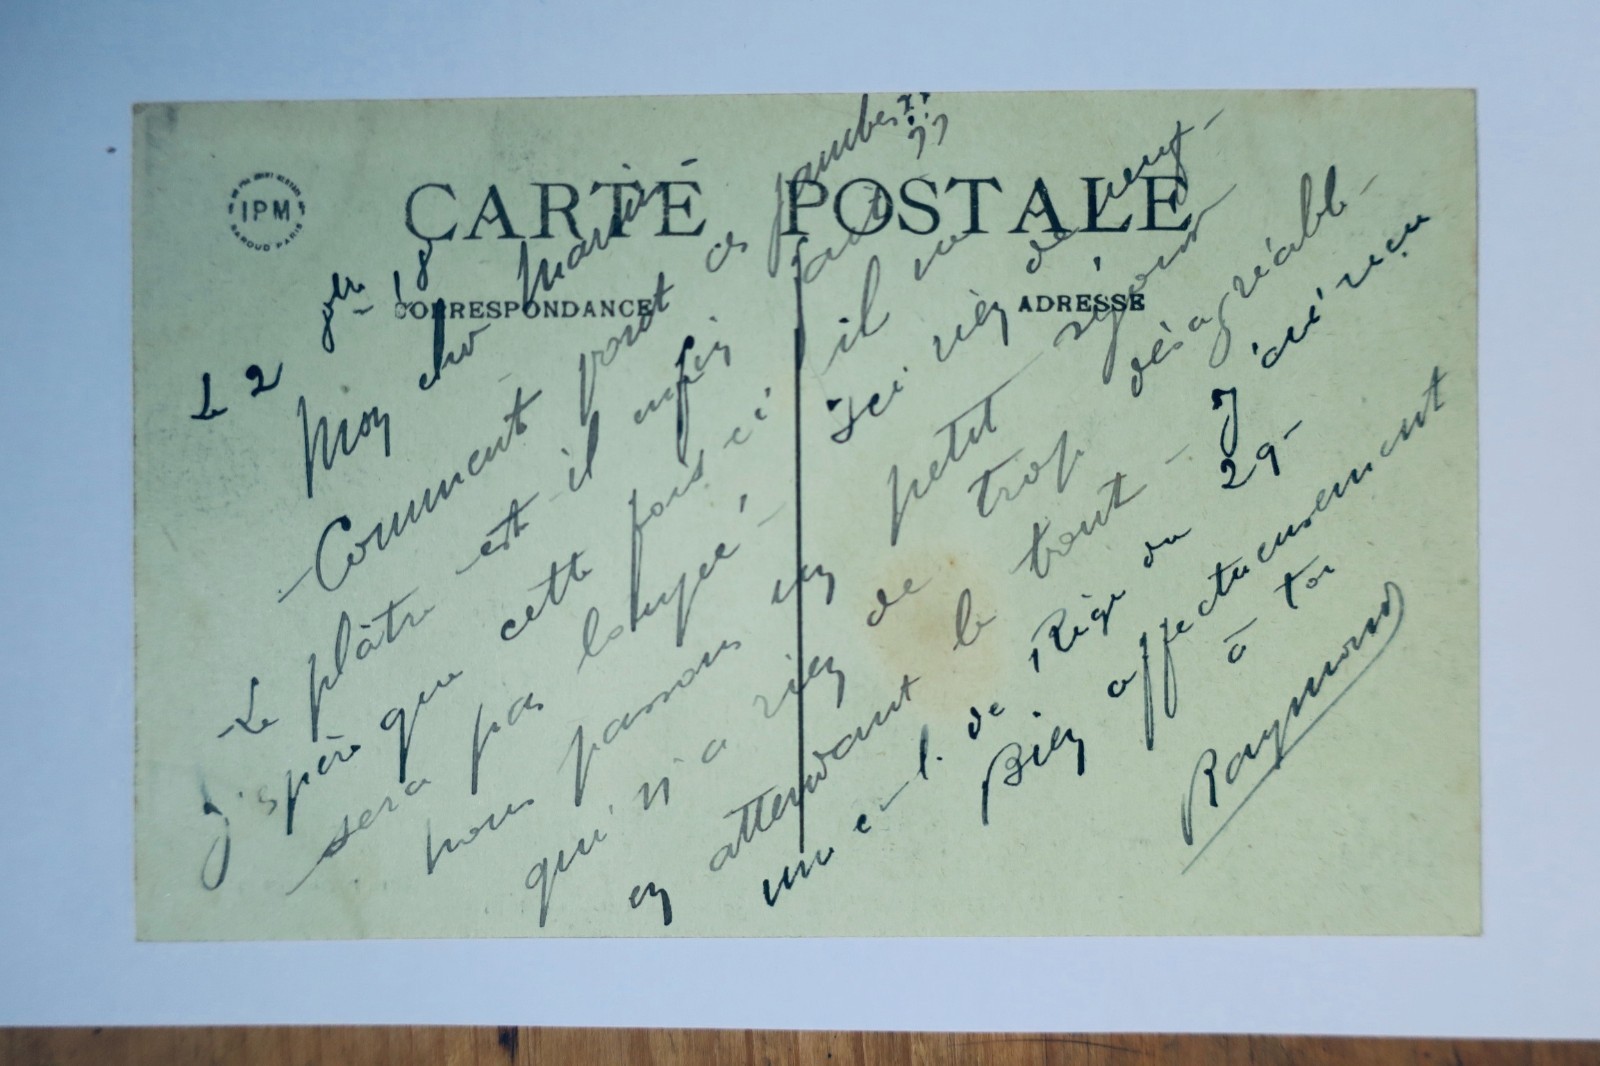 IPM
BAROUD PARIS
CARTE POSTALE
CORRESPONDANCE
ADRESSE
Le 2 8bre 18
Mon cher Martin
- Comment vont ces jambes ??
- Le plâtre est-il enfin sec
J'espère que cette fois-ci il ne
sera pas loupé - Ici rien de neuf -
nous passons un petit séjour
qui n'a rien de trop désagréable -
en attendant le tout - J'ai reçu
une c-l. de Riège du 29 -
Bien affectueusement
à toi
Raymond